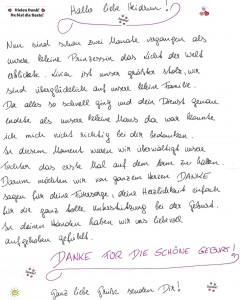 Vielen Dank!
Du bist die Beste!
Hallo liebe Heidrun!
Nun sind schon zwei Monate vergangen als
unsere kleine Prinzessin das Licht der Welt
erblickte. ist unser größter Stolz, wir
sind überglücklich auf unsere kleine Familie.
Da alles so schnell ging und dein Dienst genau
endete als unsere kleine Maus da war konnte
ich mich nicht richtig bei dir bedanken.
In diesem Moment waren wir überwältigt unsere
Tochter das erste Mal auf dem Arm zu halten.
Darum möchten wir von ganzem Herzen DANKE
sagen für deine Fürsorge, deine Herzlichkeit einfach
für die ganz tolle Unterstützung bei der Geburt.
In deinen Händen haben wir uns liebevoll
aufgehoben gefühlt.
DANKE FÜR DIE SCHÖNE GEBURT!
Ganz liebe Grüße senden Dir!